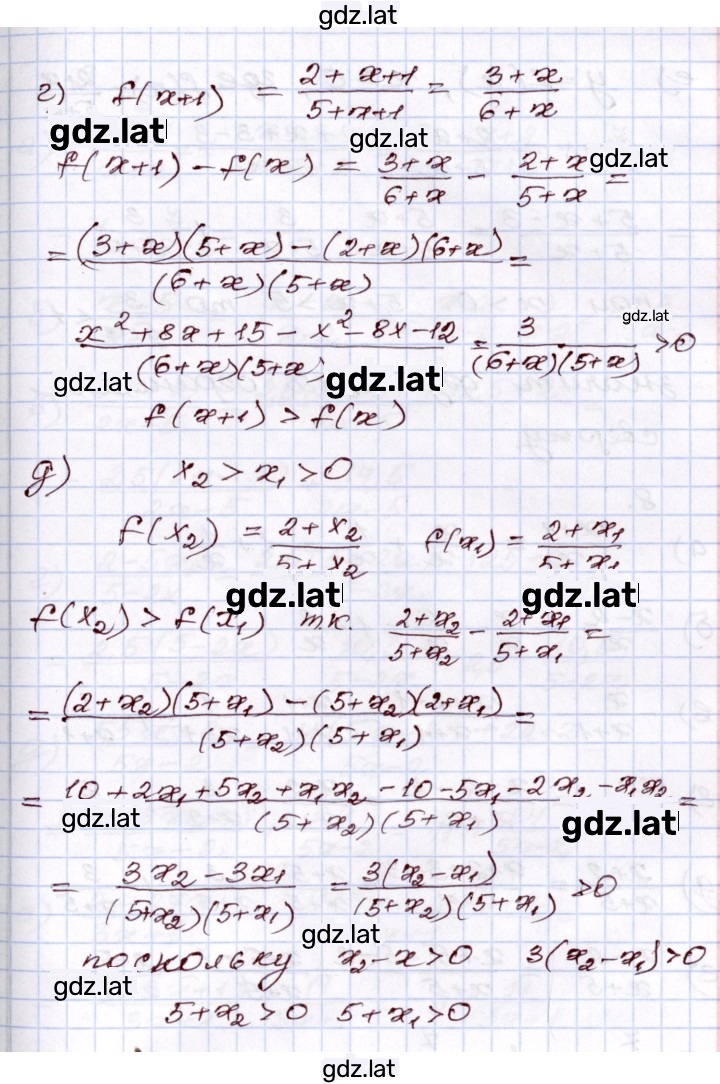 gdz.lat
г) f(x+1) = (2+x+1)/(5+x+1) = (3+x)/(6+x)
gdz.lat gdz.lat
f(x+1) - f(x) = (3+x)/(6+x) - (2+x)/(5+x) = gdz.lat
= ((3+x)(5+x) - (2+x)(6+x))/((6+x)(5+x)) =
gdz.lat
(x²+8x+15-x²-8x-12)/((6+x)(5+x)) = 3/((6+x)(5+x)) >0
gdz.lat gdz.lat
f(x+1) > f(x)
д) x₂ > x₁ > 0
f(x₂) = (2+x₂)/(5+x₂) f(x₁) = (2+x₁)/(5+x₁)
gdz.lat gdz.lat
f(x₂) > f(x₁) т.к. (2+x₂)/(5+x₂) - (2+x₁)/(5+x₁) =
= ((2+x₂)(5+x₁) - (5+x₂)(2+x₁))/((5+x₂)(5+x₁)) =
= (10+2x₁+5x₂+x₁x₂-10-5x₁-2x₂-x₁x₂)/((5+x₂)(5+x₁)) =
gdz.lat gdz.lat
= (3x₂-3x₁)/((5+x₂)(5+x₁)) = 3(x₂-x₁)/((5+x₂)(5+x₁)) >0
gdz.lat
поскольку x₂-x>0 3(x₂-x₁)>0
gdz.lat gdz.lat
5+x₂>0 5+x₁>0
gdz.lat